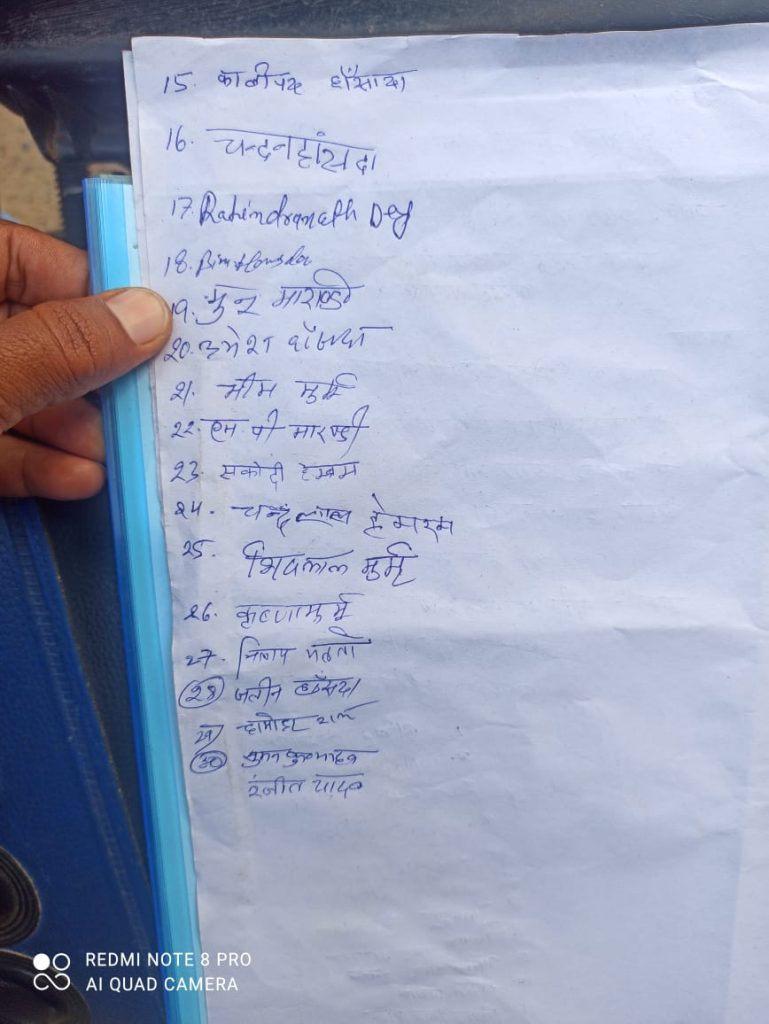 15. कालीपद हाँसदा
16. चन्दन हांसदा
17. Rabindranath Dey
18.
19. मारण्डी
20. उमेश हाँसदा
21. भीम मुर्मू
22. एम पी मारण्डी
23. सकोदी हेम्ब्रम
24. चन्द्रलाल हेमरम
25. शिवलाल मुर्मू
26. कृष्णा मुर्मू
27. महतो
28 जतीन हाँसदा
29
30
रंजीत यादव
REDMI NOTE 8 PRO
AI QUAD CAMERA